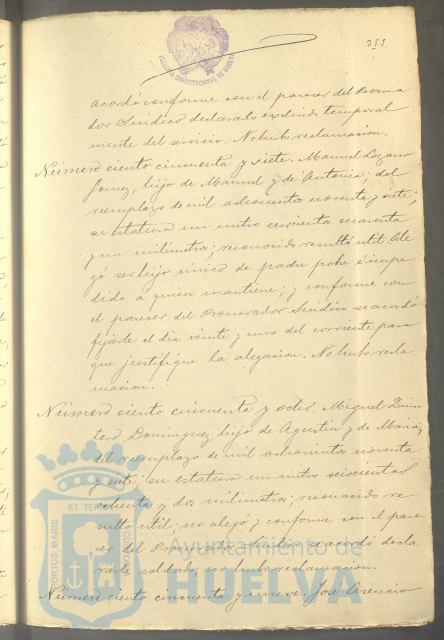 353
acordó conforme con el parecer del Procura
dor Sindico declararlo excluido temporal
mente del servicio. No hubo reclamacion.
Número ciento cincuenta y siete. Manuel Lozano
Gomez, hijo de Manuel y de Antonia; del
reemplazo de mil ochocientos noventa y siete;
su estatura un metro seiscientos cuarenta
y un milimetros; reconocido resultó util. Ale
gó ser hijo unico de padre pobre é impe
dido á quien mantiene; y conforme con
el parecer del Procurador Sindico se acordó
fijarle el dia veinte y uno del corriente para
que justifique la alegacion. No hubo recla
macion.
Número ciento cincuenta y ocho. Miguel Quin
tero Dominguez, hijo de Agustin y de Maria;
del reemplazo de mil ochocientos noventa
y siete; su estatura un metro seiscientos
ochenta y dos milimetros; reconocido re
sultó util; no alegó y conforme con el pare
cer del Procurador Sindico se acordó decla
rarle soldado, no hubo reclamacion.
Número ciento cincuenta y nueve. José Asencio
PORTUS MARIS
ET TERRAE
Ayuntamiento de
HUELVA